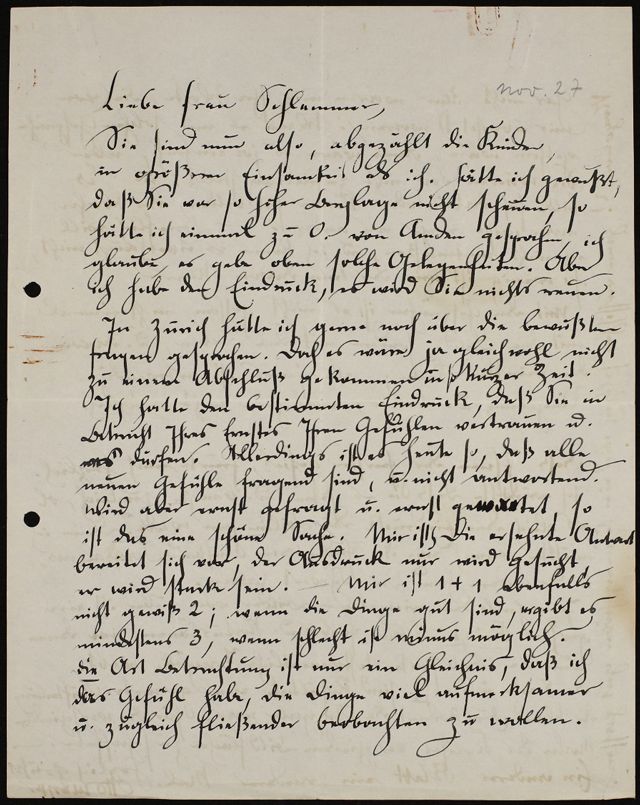 nov. 27
Liebe Frau Schlemmer,
Sie sind nun also, abgezählt die Kinder,
in größerer Einsamkeit als ich. Hätte ich gewußt,
daß Sie vor so hoher Berglage nicht scheuen, so
hätte ich einmal zu O. von Amden gesprochen, ich
glaube es gebe oben solche Gelegenheiten. Aber
ich habe den Eindruck, es wird Sie nichts reuen.
In Zürich hätte ich gerne noch über die bewußten
Fragen gesprochen. Doch es wäre ja gleichwohl nicht
zu einem Abschluß gekommen in so kurzer Zeit.
Ich hatte den bestimmten Eindruck, daß Sie in
Betracht Ihres Ernstes Ihren Gefühlen vertrauen u.
dürfen. Allerdings ist es heute so, daß alle
neuen Gefühle fragend sind, u. nicht antwortend.
Wird aber ernst gefragt u. ernst gewartet, so
ist das eine schöne Sache. Mir ist: Die ersehnte Antwort
bereitet sich vor, der Ausdruck nur wird gesucht,
er wird stark sein. — Mir ist 1 + 1 ebenfalls
nicht gewiß 2; wenn die Dinge gut sind, ergibt es
mindestens 3, wenn schlecht ist minus möglich.
die Art Betrachtung ist nur ein Gleichnis, daß ich
das Gefühl habe, die Dinge viel aufmerksamer
u. zugleich fließender beobachten zu wollen.